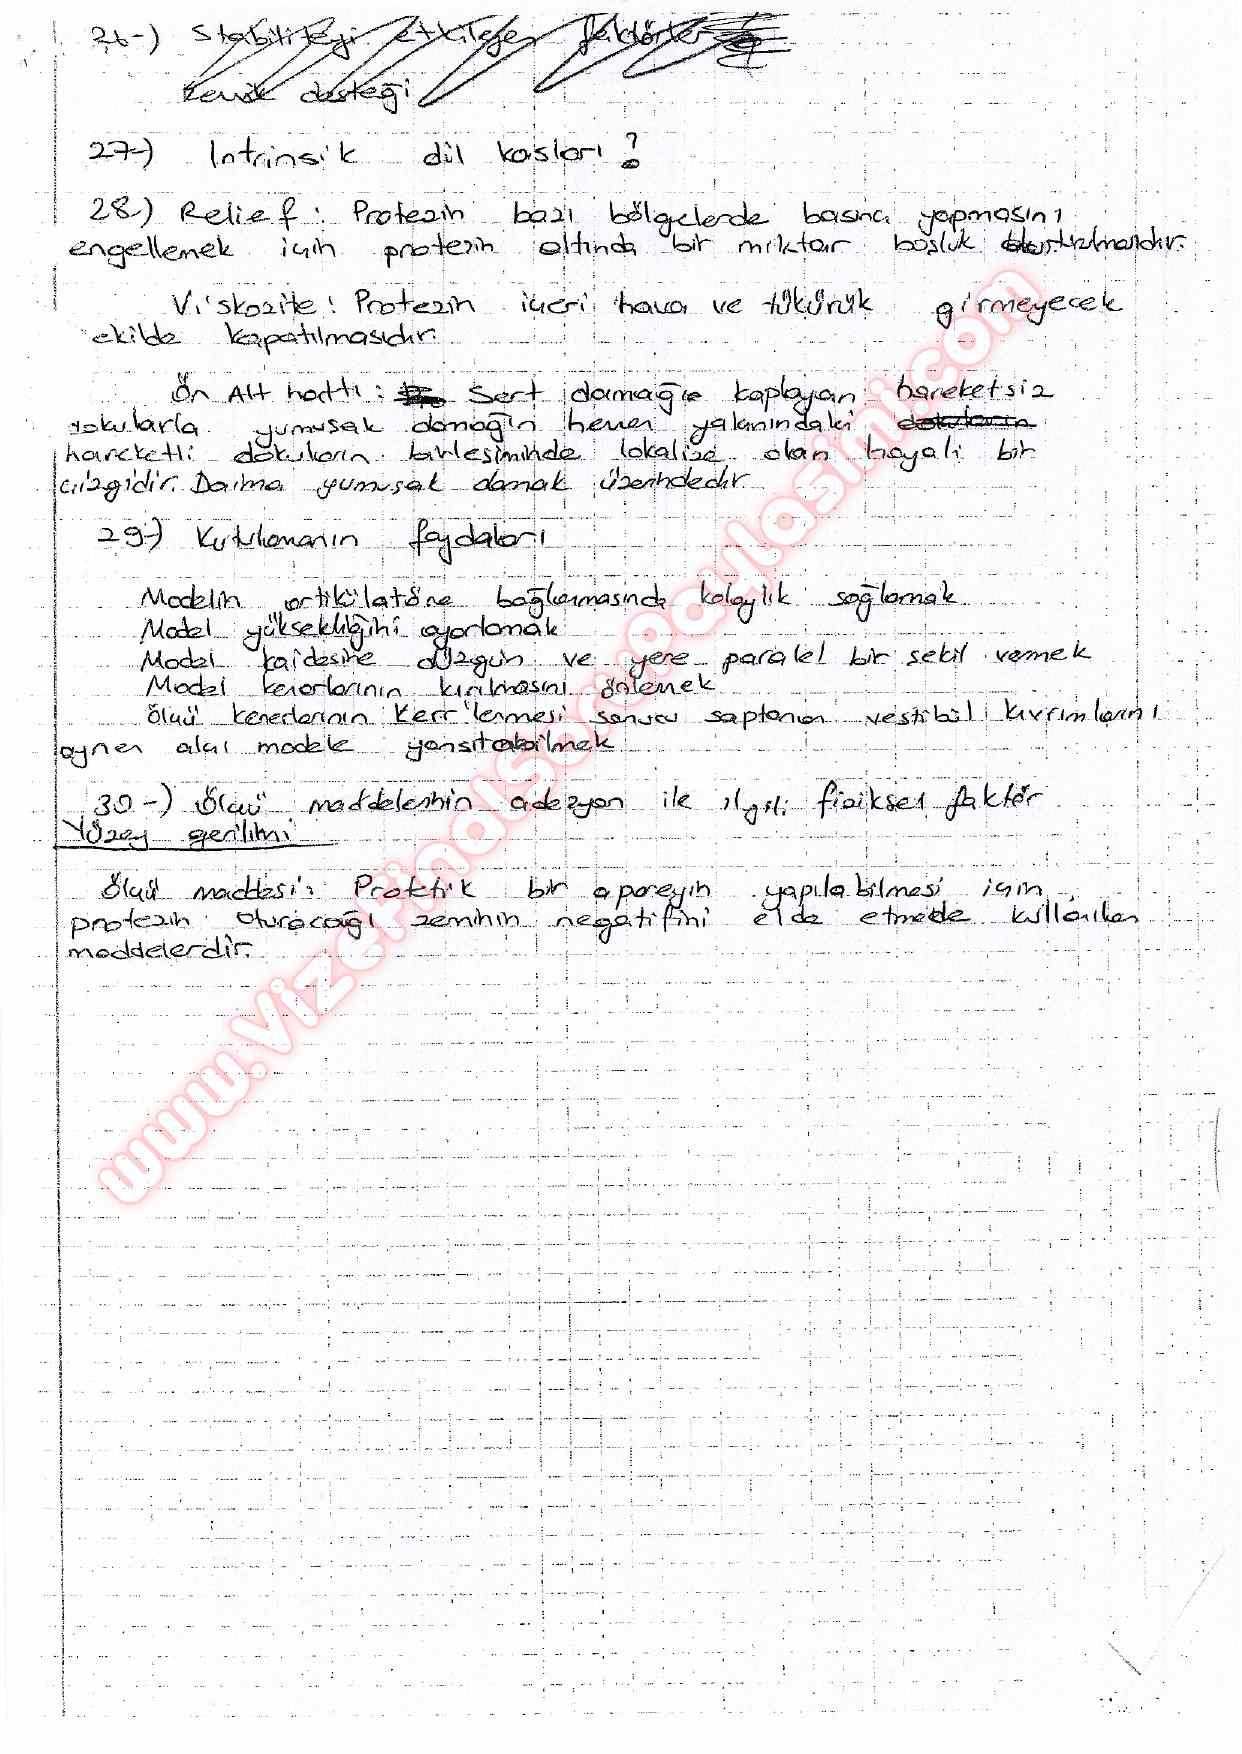 26-) Stabiliteyi etkileyen faktörler
desteği
27-) Intrinsik dil kasları?
28-) Relief: Protezin bazı bölgelerde basınç yapmasını
engellemek için protezin altında bir miktar boşluk oluşturulmasıdır.
Viskozite: Protezin içeri hava ve tükürük girmeyecek
ekilde kapatılmasıdır.
Ön Ah hattı: Sert damağı kaplayan hareketsiz
dokularla yumusak damağın hemen yakınındaki dokuların
hareketli dokuların birlesiminde lokalize olan hayali bir
çizgidir. Daima yumusak damak üzerindedir
29-) Kutulamanın faydaları
Modelin artikülatöre bağlanmasında kolaylık sağlamak
Model yüksekliğini ayarlamak
Model kaidesine düzgün ve yere paralel bir sekil vermek
Model kenarlarının kırılmasını önlemek
Ölçü kenarlarının Kerr'lenmesi sonucu saptanan vestibül kıvrımlarını
aynen alçı modele yansıtabilmek
30-) Ölçü maddelerinin adezyon ile ilgili fiziksel faktör
Yüzey gerilimi
Ölçü maddesi: Protetik bir apareyin yapılabilmesi için
protezin oturacağı zeminin negatifini elde etmede kullanılan
maddelerdir.
www.Vizefinalsorupaylasimi.com